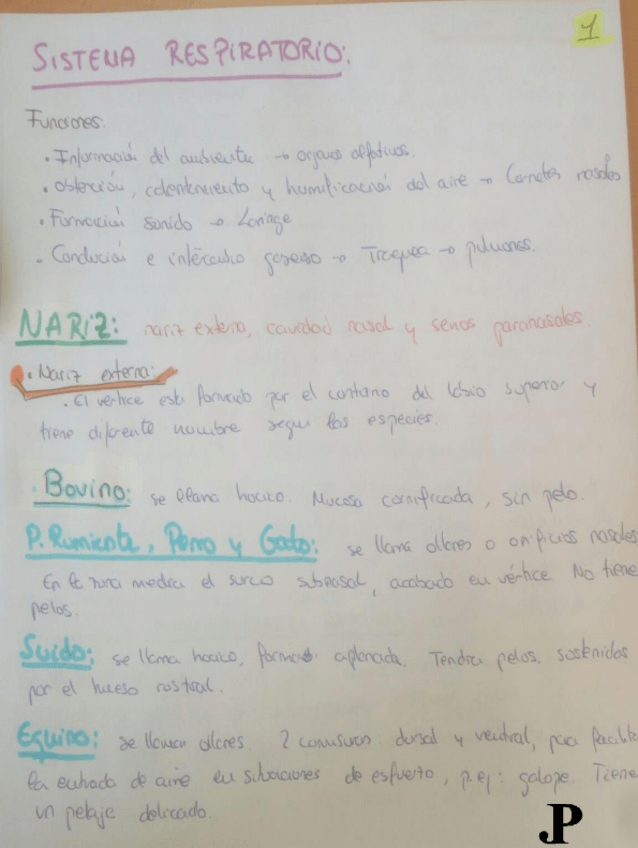 1
SISTEMA RESPIRATORIO:
Funciones:
· Información del ambiente → órganos olfativos.
· Obtención, calentamiento y humificación del aire → Cornetes nasales
· Formación sonido → Laringe
· Conducción e intercambio gaseoso → Traquea → pulmones.
NARIZ: nariz externa, cavidad nasal y senos paranasales.
· Nariz externa:
· El vértice está formado por el contorno del labio superior y
tiene diferente nombre según las especies.
· Bovino: se llama hocico. Mucosa cornificada, sin pelo.
P. Rumiante, Perro y Gato: se llama ollares o orificios nasales
En la zona media el surco subnasal, acabado en vértice. No tiene
pelos.
Suido: se llama hocico, forma aplanada. Tendra pelos, sostenidos
por el hueso rostral.
Equino: se llaman ollares 2 comisuras: dorsal y ventral, para facilitar
la entrada de aire en situaciones de esfuerzo, p.ej: galope. Tiene
un pelaje delicado.
JP